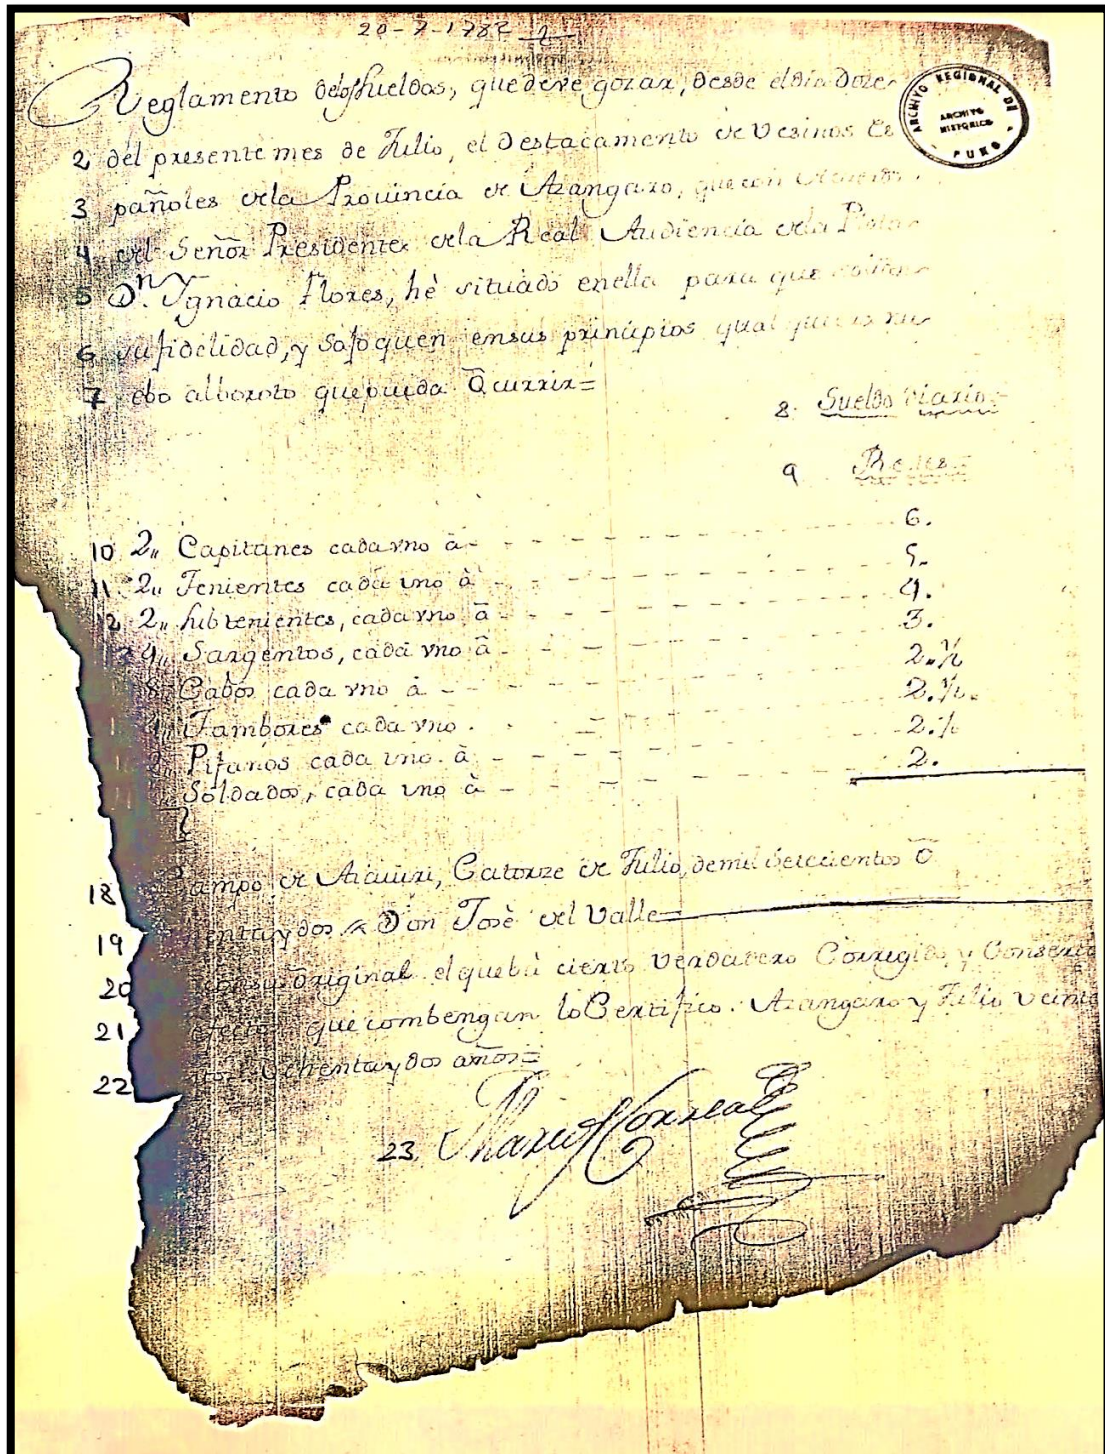 20-7-1782 2
Reglamento delosSueldos, que deve gozar, desde el dia doze
2 del presente mes de Julio, el Destacamento de Vesinos Es
3 pañoles dela Provincia de Azangaro, que con
4 del Señor Presidente dela Real Audiencia dela Plata
5 Dn. Ygnacio Flores, hè situado enella para que
6 sufidelidad, y Sofoquen ensus principios qual
7 ebo alboroto quepueda Ocurrir=
8. Sueldo diario=
9 Reales=
10 2,, Capitanes cada vno à - 6.
11 2,, Tenientes cada uno à - 5.
12 2,, Subtenientes, cada vno, à - 4.
4,, Sargentos, cada vno à - 3.
8 Cabos cada vno à - 2.½
4,, Tambores cada vno. 2.½.
2,, Pifanos cada vno. à - 2.½
Soldados, cada vno à - 2.
18 Campo de Catorze de Julio, demil setecientos O
19 hentaydos Don Josè del Valle=
20 consu Original el queba cierto Verdadero Corregido, y Conserta
21 efectos que combengan lo Certifico. Azangaro y Julio veinte
22 Ochentaydos años=
23.
ARCHIVO REGIONAL DE PUNO
ARCHIVO HISTORICO